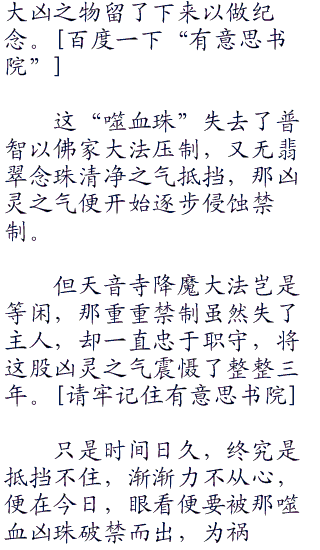 大凶之物留了下来以做纪
念。[百度一下“有意思书
院”]
这“噬血珠”失去了普
智以佛家大法压制，又无翡
翠念珠清净之气抵挡，那凶
灵之气便开始逐步侵蚀禁
制。
但天音寺降魔大法岂是
等闲，那重重禁制虽然失了
主人，却一直忠于职守，将
这股凶灵之气震慑了整整三
年。[请牢记住有意思书院]
只是时间日久，终究是
抵挡不住，渐渐力不从心，
便在今日，眼看便要被那噬
血凶珠破禁而出，为祸